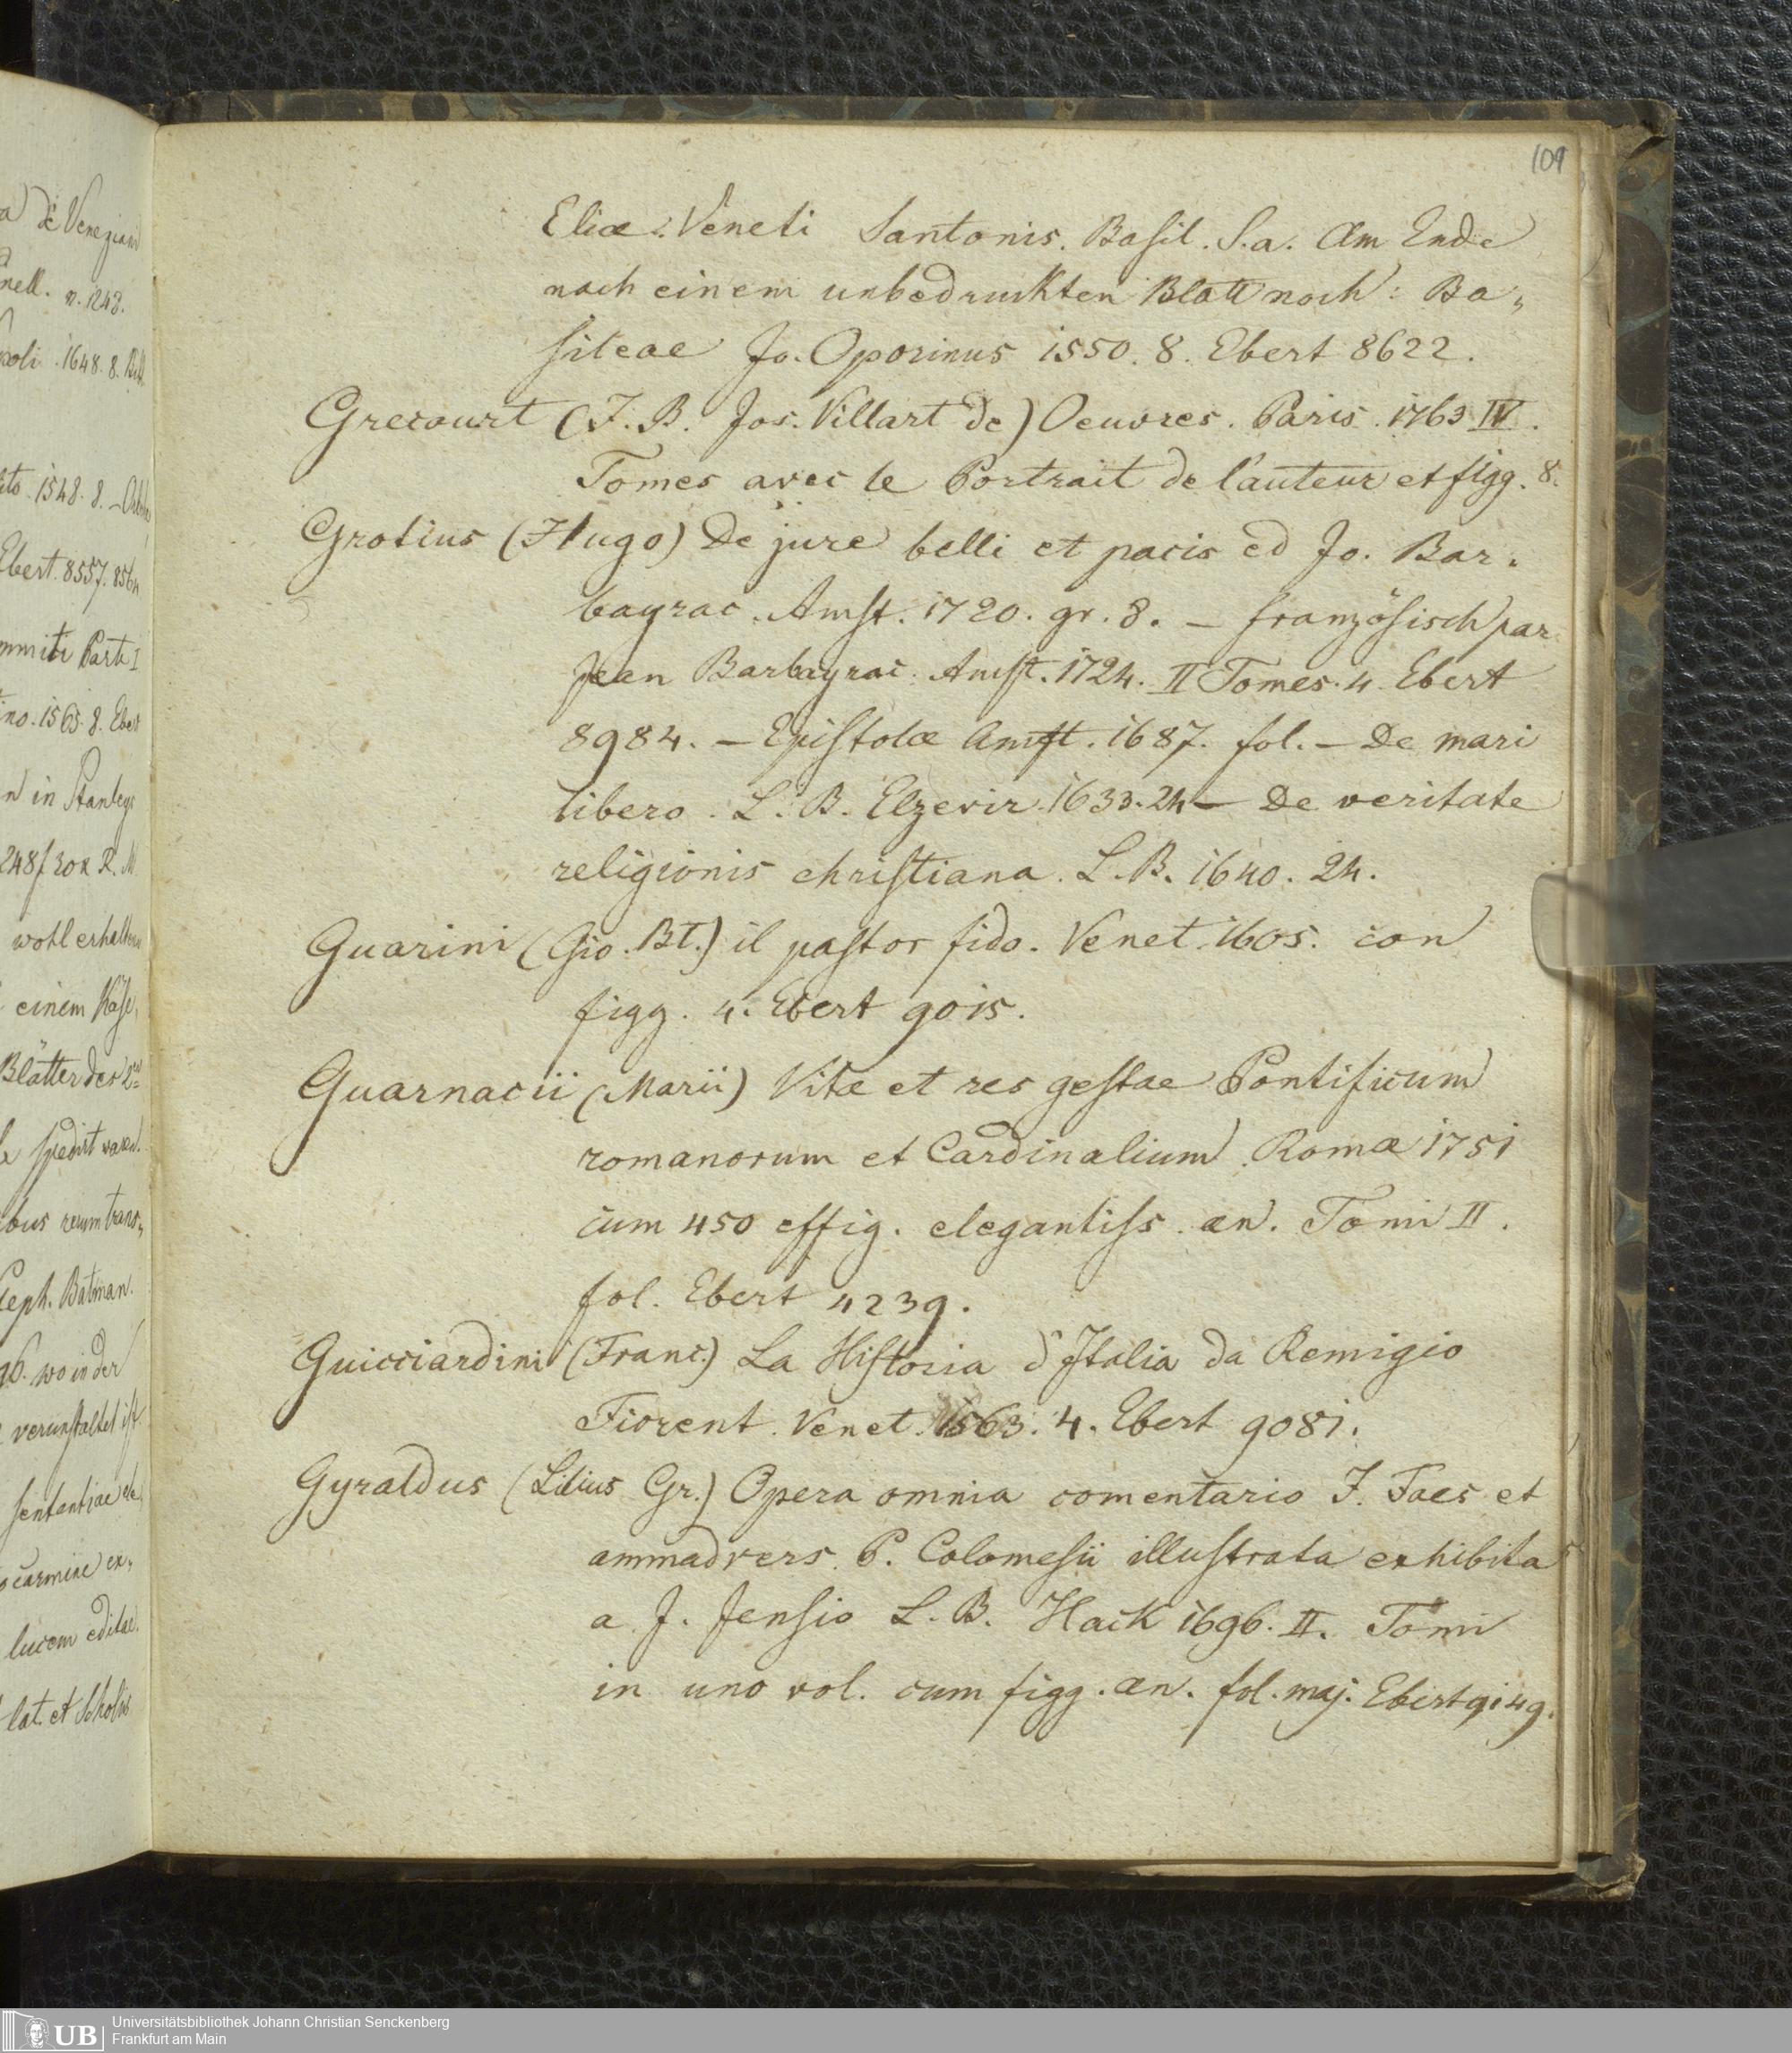 109
Eliae Veneti Santonis. Basil. S.a. Am Ende
nach einem unbedruckten Blatt noch: Ba„
sileae Jo. Oporinus 1550. 8. Ebert 8622.
Grecourt (J. B. Jos. Villart de) Oeuvres. Paris. 1763 IV.
Tomes avec le Portrait de l'auteur et figg. 8.
Grotius (Hugo) De jure belli et pacis ed Jo. Bar„
bayrac. Amst. 1720. gr. 8. — französisch par
Jean Barbayrac. Amst. 1724. II Tomes. 4 Ebert
8984. — Epistolae Amst. 1687. fol. — De mari
libero. L. B. Elzevir. 1633. 24 — De veritate
religionis christiana. L. B. 1640. 24.
Guarini (Gio. Bt.) il pastor fido. Venet. 1605. con
figg. 4. Ebert 9015.
Guarnacii (Marii) Vitae et res gestae Pontificum
romanorum et Cardinalium. Romae 1751
cum 450 effig. elegantiss. aen. Tomi II.
fol. Ebert 4239.
Guicciardini (Franc.) La Historia d'Italia da Remigio
Fiorent. Venet. 1563. 4. Ebert 9081.
Gyraldus (Lilius Gr.) Opera omnia comentario J. Faes et
ammadvers. P. Colomesii illustrata exhibita
a J. Jensio L. B. Hack 1696. II. Tomi
in uno vol. cum figg. aen. fol. maj. Ebert 9149.
di Venezian
n. 1248.
1648. 8.
1548. 8.
Ebert. 8557.
Parte I
1565. 8. Ebert
in Stanleys
wohl erhalten
einem
Blätter des
Steph. Batman.
wo in der
verunstaltet ist
sententiae
carmine ex„
lucem editae.
lat. et Scholis
UB
Universitätsbibliothek Johann Christian Senckenberg
Frankfurt am Main